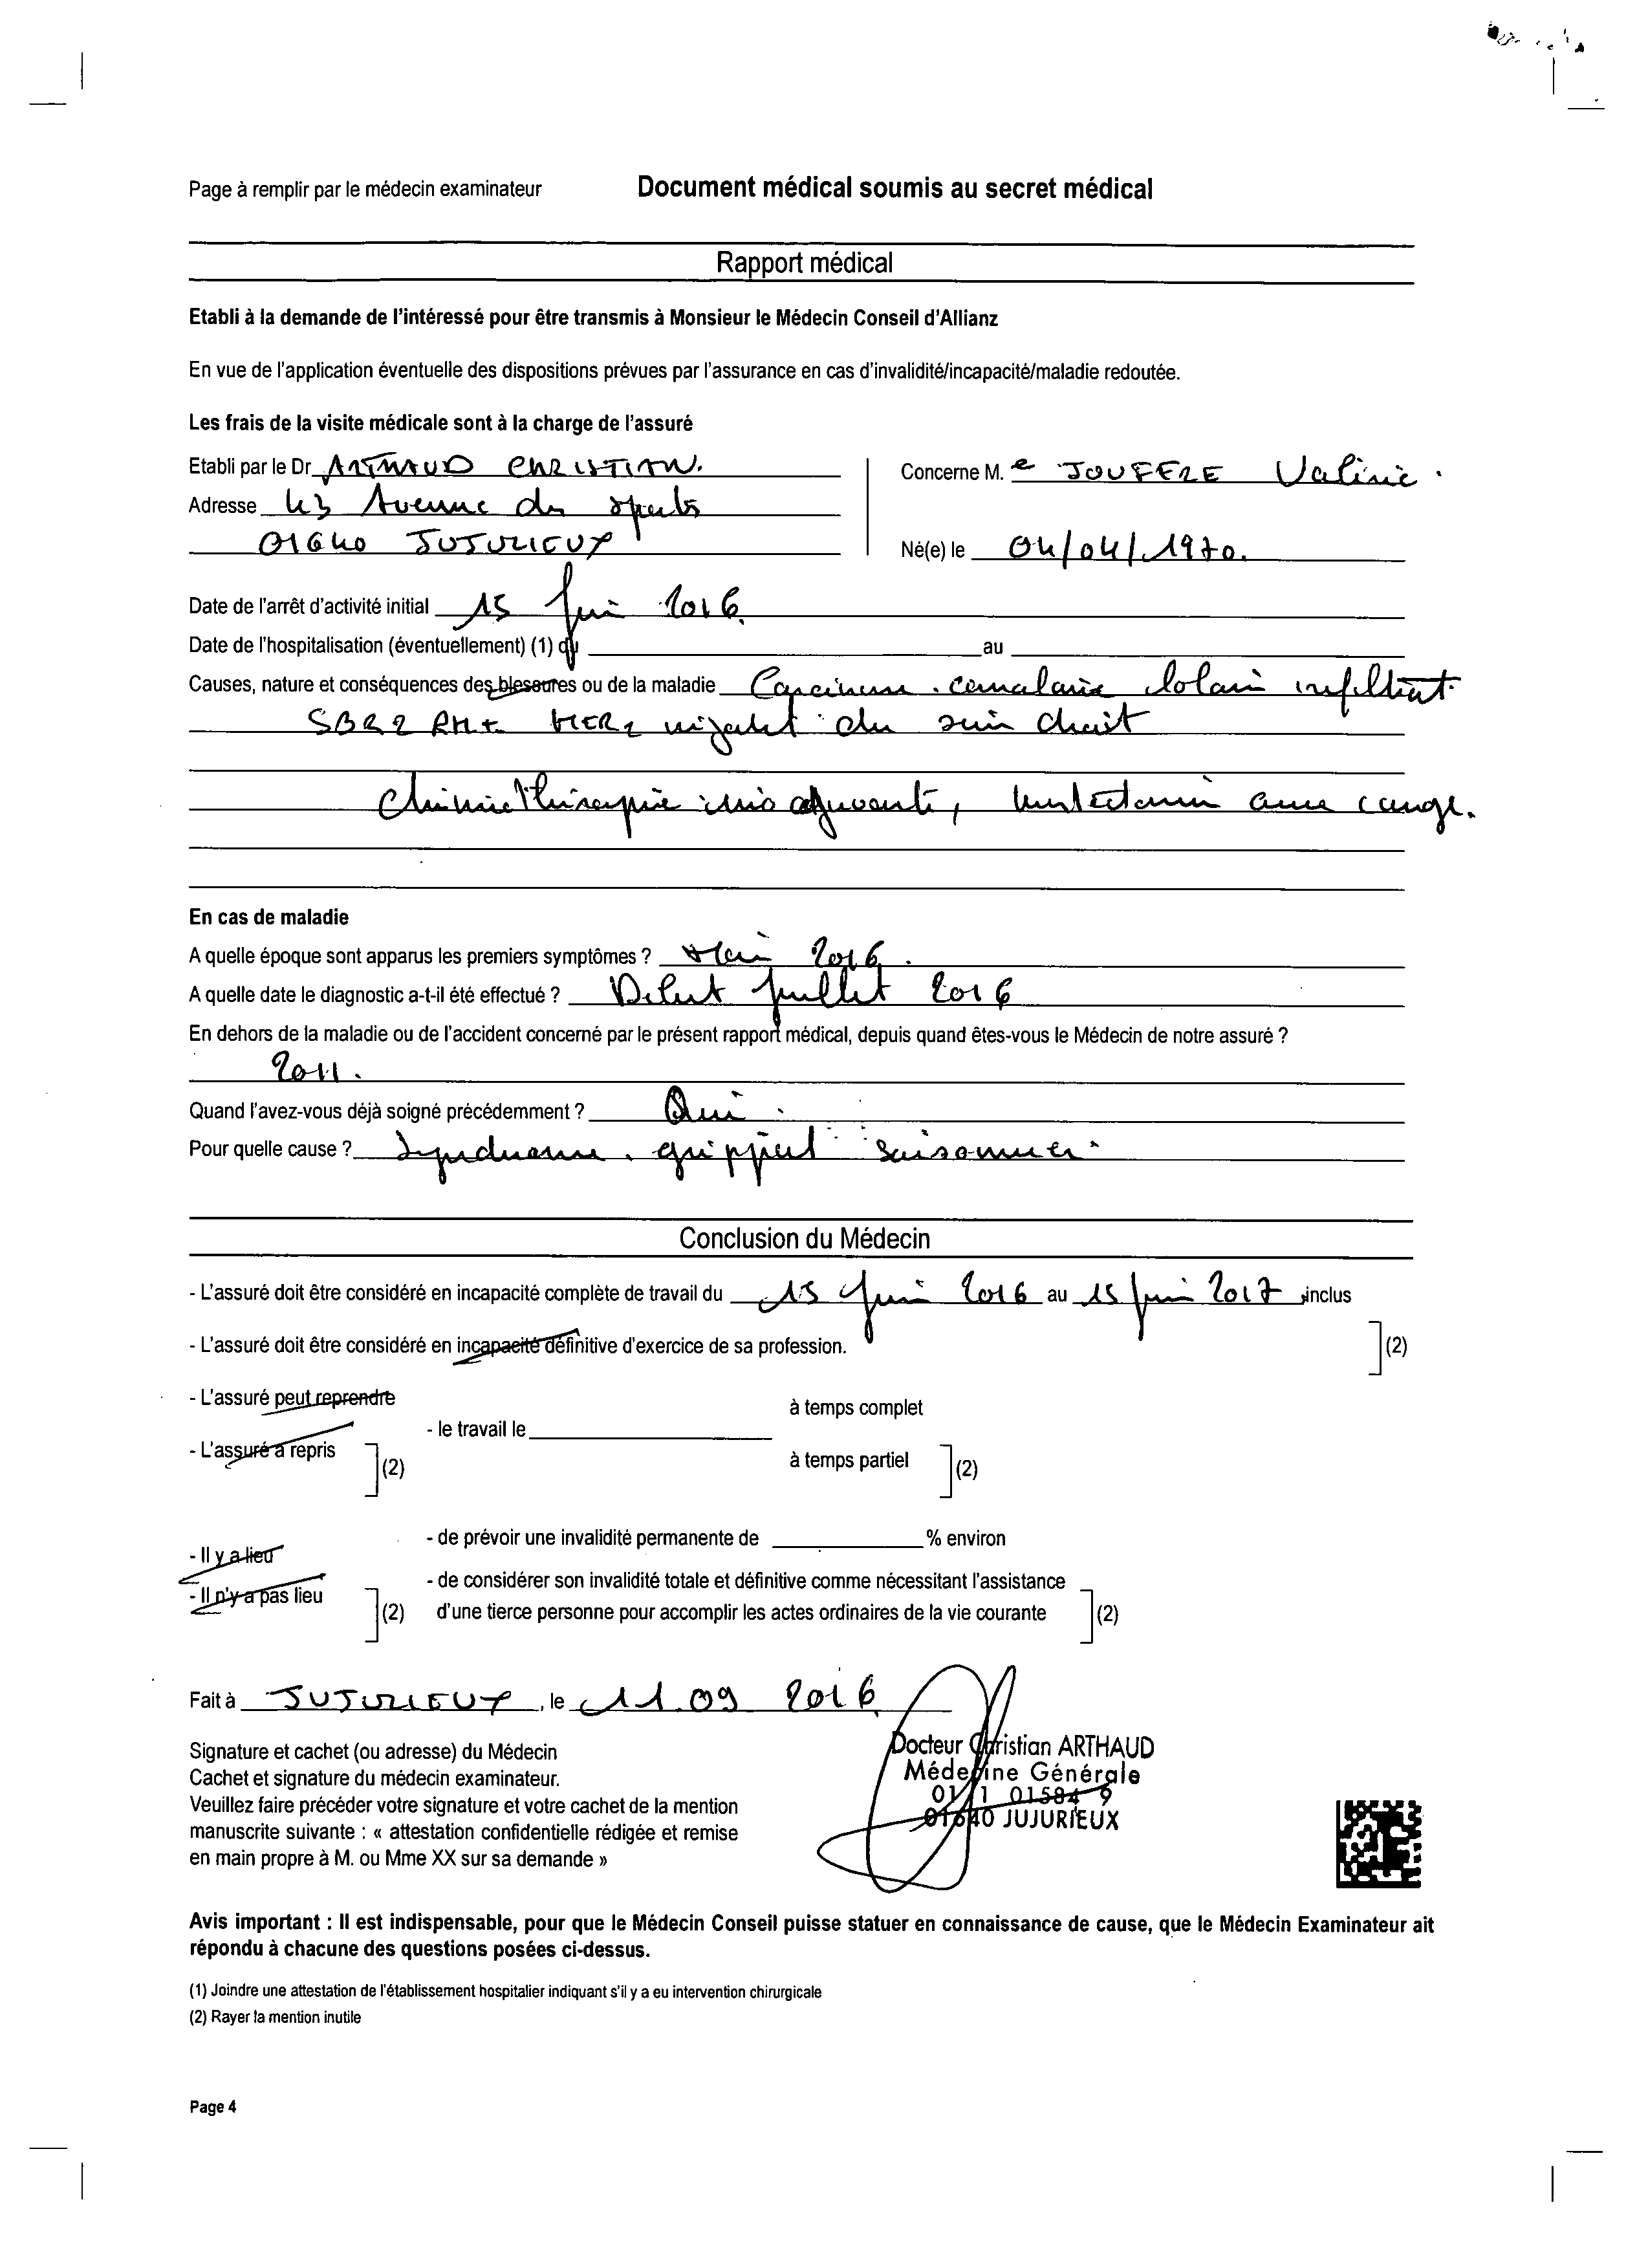 Page à remplir par le médecin examinateur Document médical soumis au secret médical
Rapport médical
Etabli à la demande de l'intéressé pour être transmis à Monsieur le Médecin Conseil d'Allianz
En vue de l'application éventuelle des dispositions prévues par l'assurance en cas d'invalidité/incapacité/maladie redoutée.
Les frais de la visite médicale sont à la charge de l'assuré
Etabli par le Dr ARTHAUD CHRISTIAN. Concerne M. e JOUFFRE Valérie.
Adresse 43 Avenue des sports
01640 JUJURIEUX Né(e) le 04/04/1970.
Date de l'arrêt d'activité initial 15 Juin 2016.
Date de l'hospitalisation (éventuellement) (1) du au
Causes, nature et conséquences des blessures ou de la maladie Carcinome canalaire infiltrant
SBR2 RH+ HER2 négatif du sein droit
Chimiothérapie néo adjuvante, curage.
En cas de maladie
A quelle époque sont apparus les premiers symptômes ? Mai 2016.
A quelle date le diagnostic a-t-il été effectué ? Début Juillet 2016
En dehors de la maladie ou de l'accident concerné par le présent rapport médical, depuis quand êtes-vous le Médecin de notre assuré ?
2011.
Quand l'avez-vous déjà soigné précédemment ? Oui.
Pour quelle cause ? Syndrome grippal saisonnier
Conclusion du Médecin
- L'assuré doit être considéré en incapacité complète de travail du 15 Juin 2016 au 15 Juin 2017 inclus
- L'assuré doit être considéré en incapacité définitive d'exercice de sa profession. (2)
- L'assuré peut reprendre à temps complet
- le travail le
- L'assuré a repris (2) à temps partiel (2)
- de prévoir une invalidité permanente de % environ
- Il y a lieu
- de considérer son invalidité totale et définitive comme nécessitant l'assistance
- Il n'y a pas lieu
(2) d'une tierce personne pour accomplir les actes ordinaires de la vie courante (2)
Fait à JUJURIEUX, le 11.09 2016
Signature et cachet (ou adresse) du Médecin
Cachet et signature du médecin examinateur.
Veuillez faire précéder votre signature et votre cachet de la mention
manuscrite suivante : « attestation confidentielle rédigée et remise
en main propre à M. ou Mme XX sur sa demande »
Docteur Christian ARTHAUD
Médecine Générale
01 1 01584 9
01640 JUJURIEUX
Avis important : Il est indispensable, pour que le Médecin Conseil puisse statuer en connaissance de cause, que le Médecin Examinateur ait
répondu à chacune des questions posées ci-dessus.
(1) Joindre une attestation de l'établissement hospitalier indiquant s'il y a eu intervention chirurgicale
(2) Rayer la mention inutile
Page 4